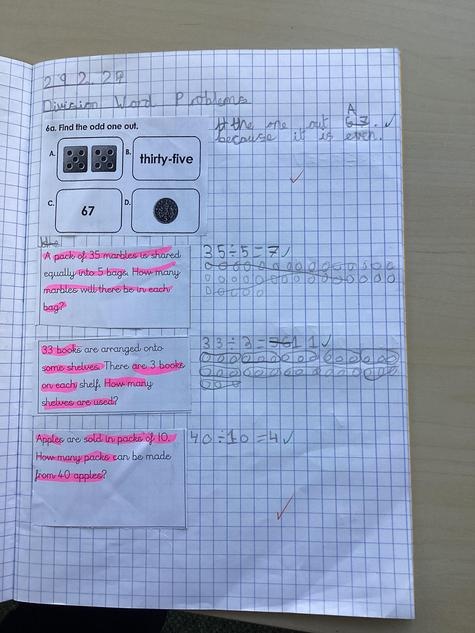 29.2.24
Division Word Problems
6a. Find the odd one out.
A.
B.
thirty-five
C.
67
D.
the one out A
because it is even.
A pack of 35 marbles is shared
equally into 5 bags. How many
marbles will there be in each
bag?
35÷5=7✓
33 books are arranged onto
some shelves. There are 3 books
on each shelf. How many
shelves are used?
33÷3=11✓
Apples are sold in packs of 10.
How many packs can be made
from 40 apples?
40÷10=4✓